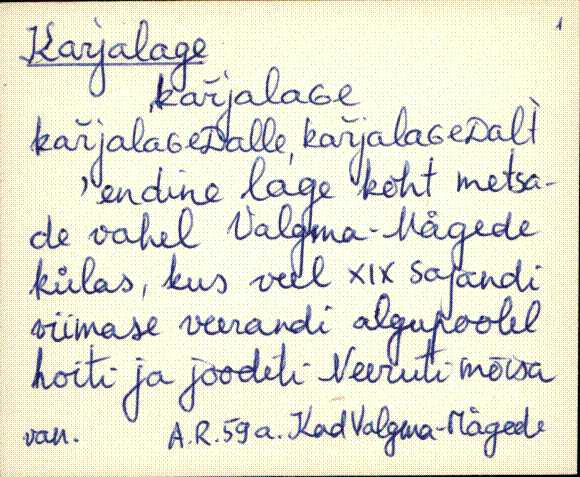 1
Karjalage
ˎkaŕjalaGe
kaŕjalaGeDalle, kaŕjalaGeDalt
’endine lage koht metsa-
de vahel Valgma-Mägede
külas, kus veel XIX sajandi
viimase veerandi algupoolel
hoiti ja joodeti Neeruti mõisa
van. A.R. 59 a. Kad Valgma-Mägede